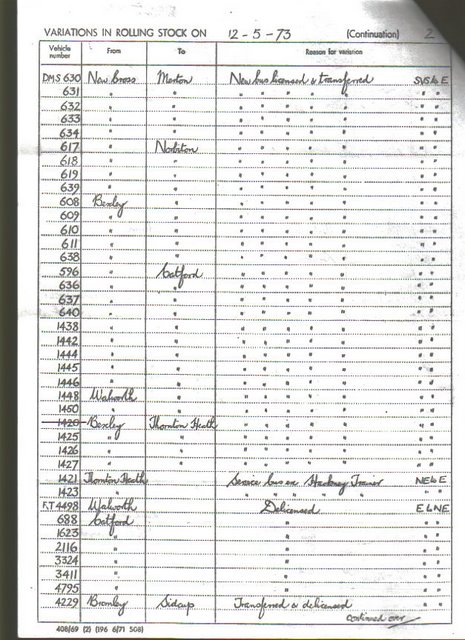 VARIATIONS IN ROLLING STOCK ON 12-5-73 (Continuation) 2
Vehicle number From To Reason for variation
DMS 630 New Cross Merton New bus licensed & transferred SVS to E
631 " " " " " " " " "
632 " " " " " " " " "
633 " " " " " " " " "
634 " " " " " " " " "
617 " Norbiton " " " " " " "
618 " " " " " " " " "
619 " " " " " " " " "
639 " " " " " " " " "
608 Bexley " " " " " " " "
609 " " " " " " " " "
610 " " " " " " " " "
611 " " " " " " " " "
638 " " " " " " " " "
596 " Catford " " " " " " "
636 " " " " " " " " "
637 " " " " " " " " "
640 " " " " " " " " "
1438 " " " " " " " " "
1442 " " " " " " " " "
1444 " " " " " " " " "
1445 " " " " " " " " "
1446 " " " " " " " " "
1448 Walworth " " " " " " " "
1450 " " " " " " " " "
1420 Bexley Thornton Heath " " " " " " "
1425 " " " " " " " " "
1426 " " " " " " " " "
1427 " " " " " " " " "
1421 Thornton Heath Service bus ex Hackney Trainer NE to E
1423 " " " " " " " "
RT 4498 Walworth Delicensed E to NE
688 Catford " " "
1623 " " " "
2116 " " " "
3324 " " " "
3411 " " " "
4795 " " " "
4229 Bromley Sidcup Transferred & delicensed " "
continued over
408/69 (2) (196 6/71 508)